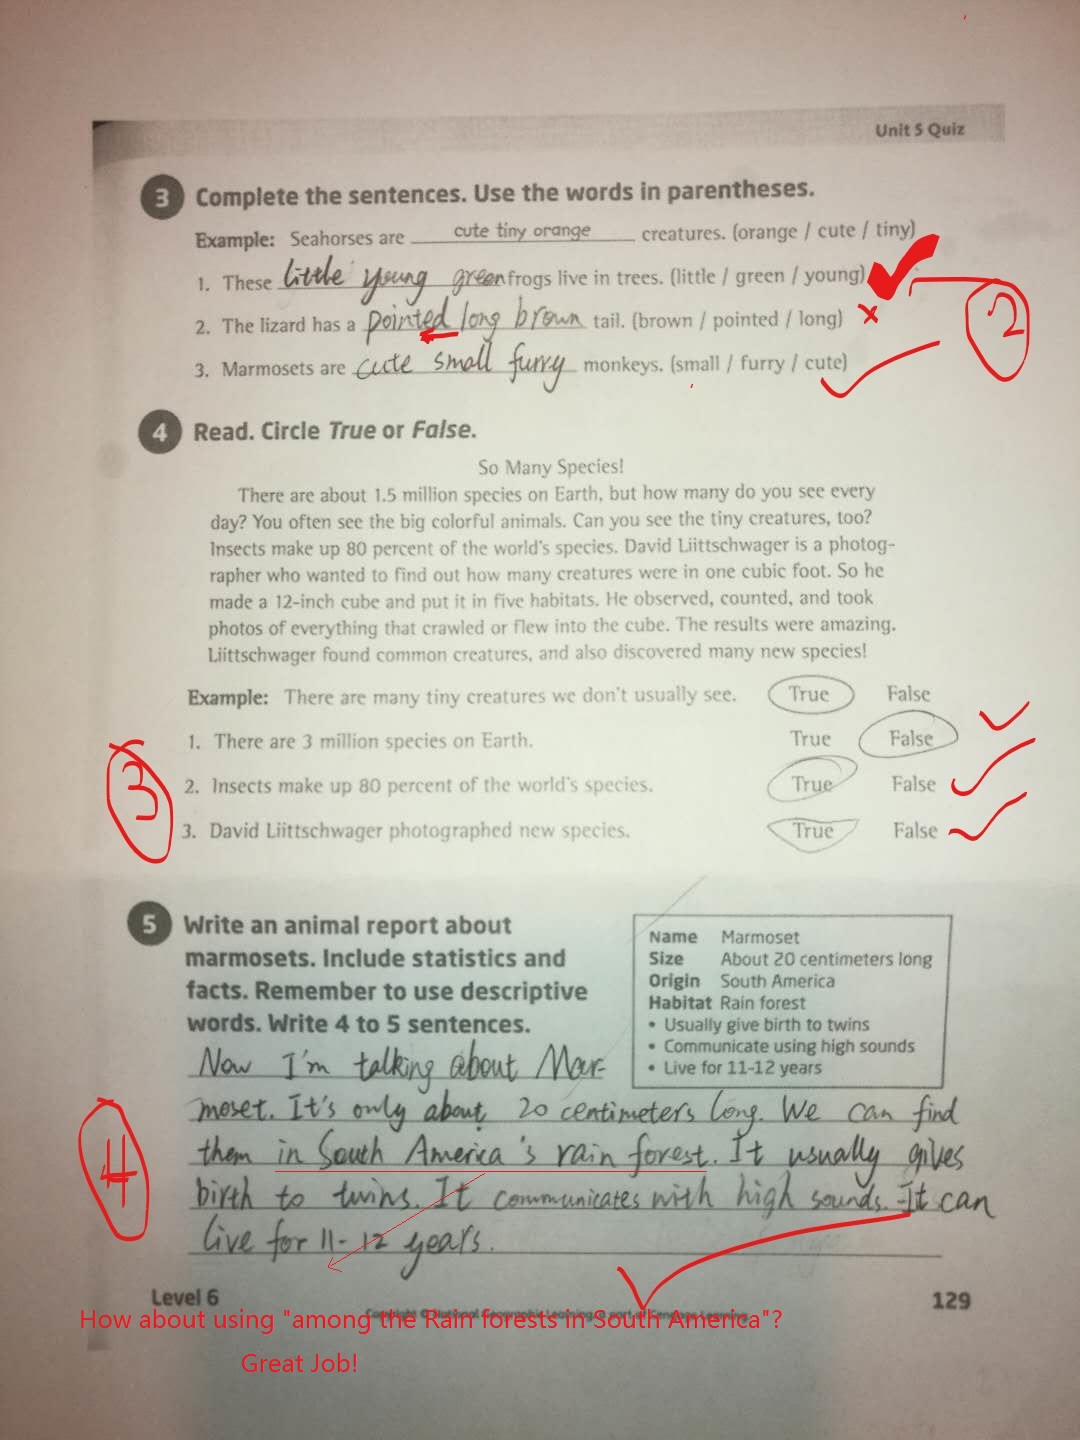 Unit 5 Quiz
3 Complete the sentences. Use the words in parentheses.
Example: Seahorses are cute tiny orange creatures. (orange / cute / tiny)
1. These little young green frogs live in trees. (little / green / young)
2. The lizard has a pointed long brown tail. (brown / pointed / long) x
2
3. Marmosets are cute small furry monkeys. (small / furry / cute)
4 Read. Circle True or False.
So Many Species!
There are about 1.5 million species on Earth, but how many do you see every
day? You often see the big colorful animals. Can you see the tiny creatures, too?
Insects make up 80 percent of the world's species. David Liittschwager is a photog-
rapher who wanted to find out how many creatures were in one cubic foot. So he
made a 12-inch cube and put it in five habitats. He observed, counted, and took
photos of everything that crawled or flew into the cube. The results were amazing.
Liittschwager found common creatures, and also discovered many new species!
Example: There are many tiny creatures we don't usually see. True False
1. There are 3 million species on Earth. True False
3
2. Insects make up 80 percent of the world's species. True False
3. David Liittschwager photographed new species. True False
5 Write an animal report about
marmosets. Include statistics and
facts. Remember to use descriptive
words. Write 4 to 5 sentences.
Name Marmoset
Size About 20 centimeters long
Origin South America
Habitat Rain forest
• Usually give birth to twins
• Communicate using high sounds
• Live for 11-12 years
Now I'm talking about Mar-
moset. It's only about 20 centimeters long. We can find
them in South America's rain forest. It usually gives
4
birth to twins. It communicates with high sounds. It can
live for 11-12 years.
Level 6
129
Copyright © National Geographic Learning, a part of Cengage Learning
How about using "among the Rain forests in South America"?
Great Job!